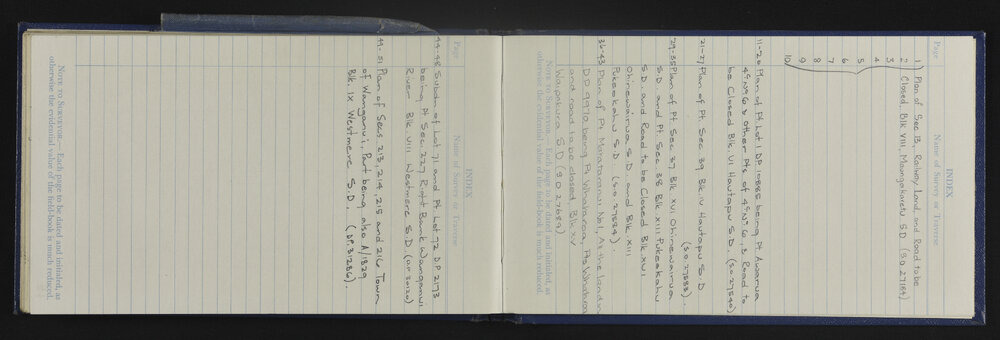 INDEX
Page
Name of Survey or Traverse
1) Plan of Sec 13, Railway Land, and Road to be
2 Closed, Blk VIII, Maungakaretu S.D. (S.O. 27164)
3
4
5
6
7
8
9
10
11-20 Plan of Pt Lot 1 D.P. 10885 being Pt Awarua
4A No 6 & other Pts of 4A No 6, & Road to
be Closed Blk. VI Hautapu S.D. (S.O. 27540)
21-27 Plan of Pt Sec 39 Blk IV Hautapu S D
(S.O. 27583).
29-35 Plan of Pt Sec 37 Blk XVI Ohinewairua
S.D. and Pt Sec 38 Blk XIII Pukeokahu
S.D. and Road to be Closed Blk XVI
Ohinewairua S.D. and Blk XIII
Pukeokahu S.D. (S.O. 27584).
36-43 Plan of Pt No 1, the land in
D.P. being Pt
and road to be closed, Blk XV
Waipakura S.D. (S.O. 27689)
NOTE TO SURVEYOR.— Each page to be dated and initialed, as
otherwise the evidential value of the field-book is much reduced.
INDEX
Page
Name of Survey or Traverse
44-48 Subdn of Lot 71 and Pt Lot 72 D.P. 2173
being Pt Sec. 227 Right Bank Wanganui
River Blk. VIII Westmere S.D. (D.P. 30120)
49-51 Plan of Secs 213, 214, 215 and 216 Town
of Wanganui, Part being also A/1829
Blk. IX Westmere S.D. (D.P. 31286).
NOTE TO SURVEYOR.— Each page to be dated and initialed, as
otherwise the evidential value of the field-book is much reduced.